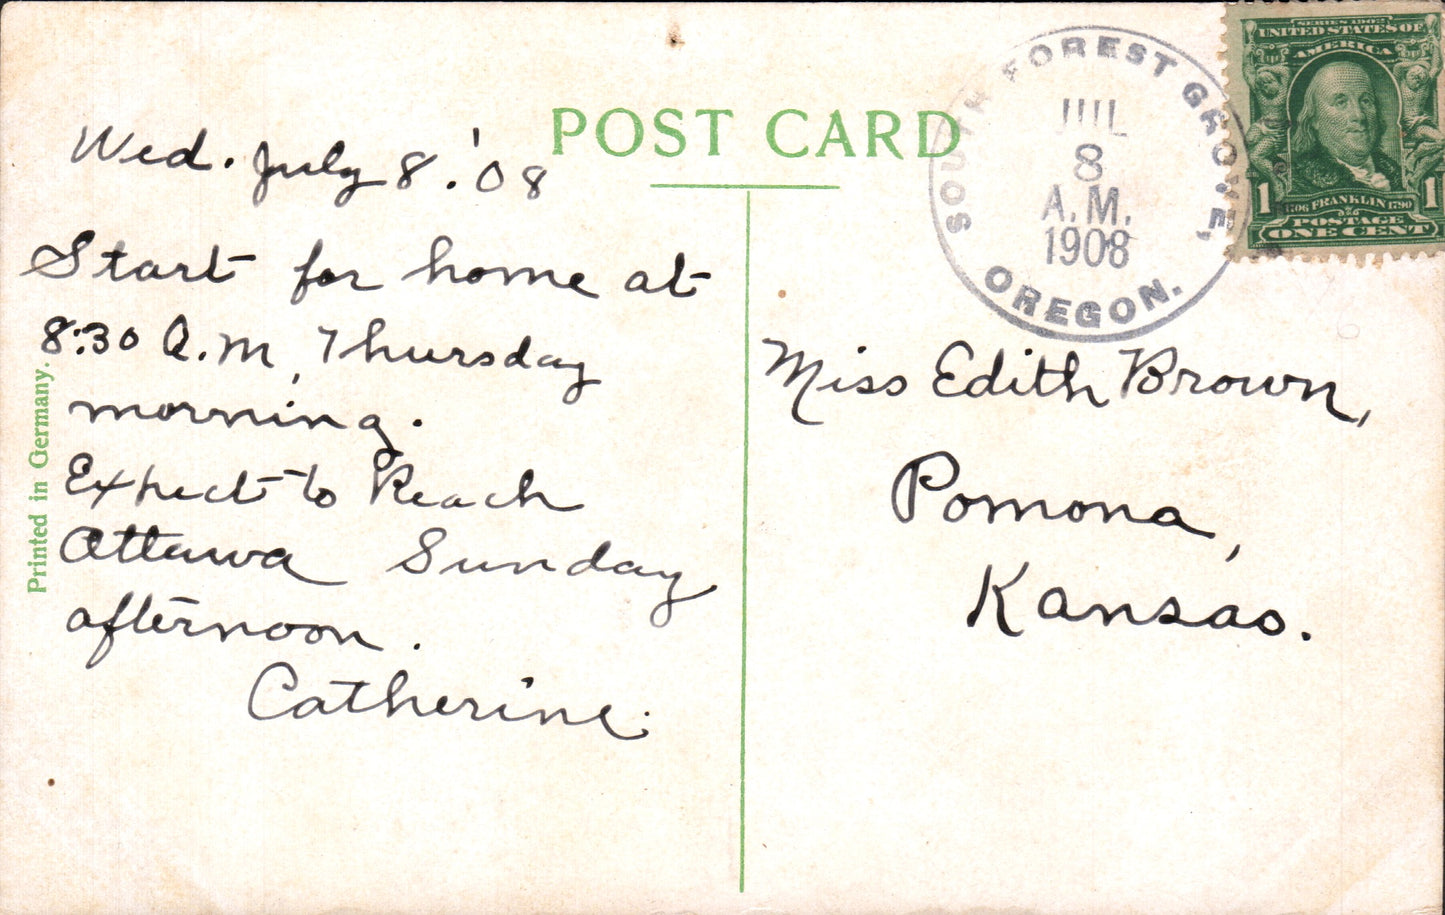 POST CARD
Wed. July 8. '08
Start for home at
8:30 A.M, Thursday
morning.
Expect to Reach
Ottawa Sunday
afternoon.
Catherine.
Printed in Germany.
SOUTH FOREST GROVE,
JUL
8
A.M.
1908
OREGON.
SERIES 1902
UNITED STATES OF
AMERICA
1 1
1706 FRANKLIN 1790
POSTAGE
ONE CENT
Miss Edith Brown,
Pomona,
Kansas.